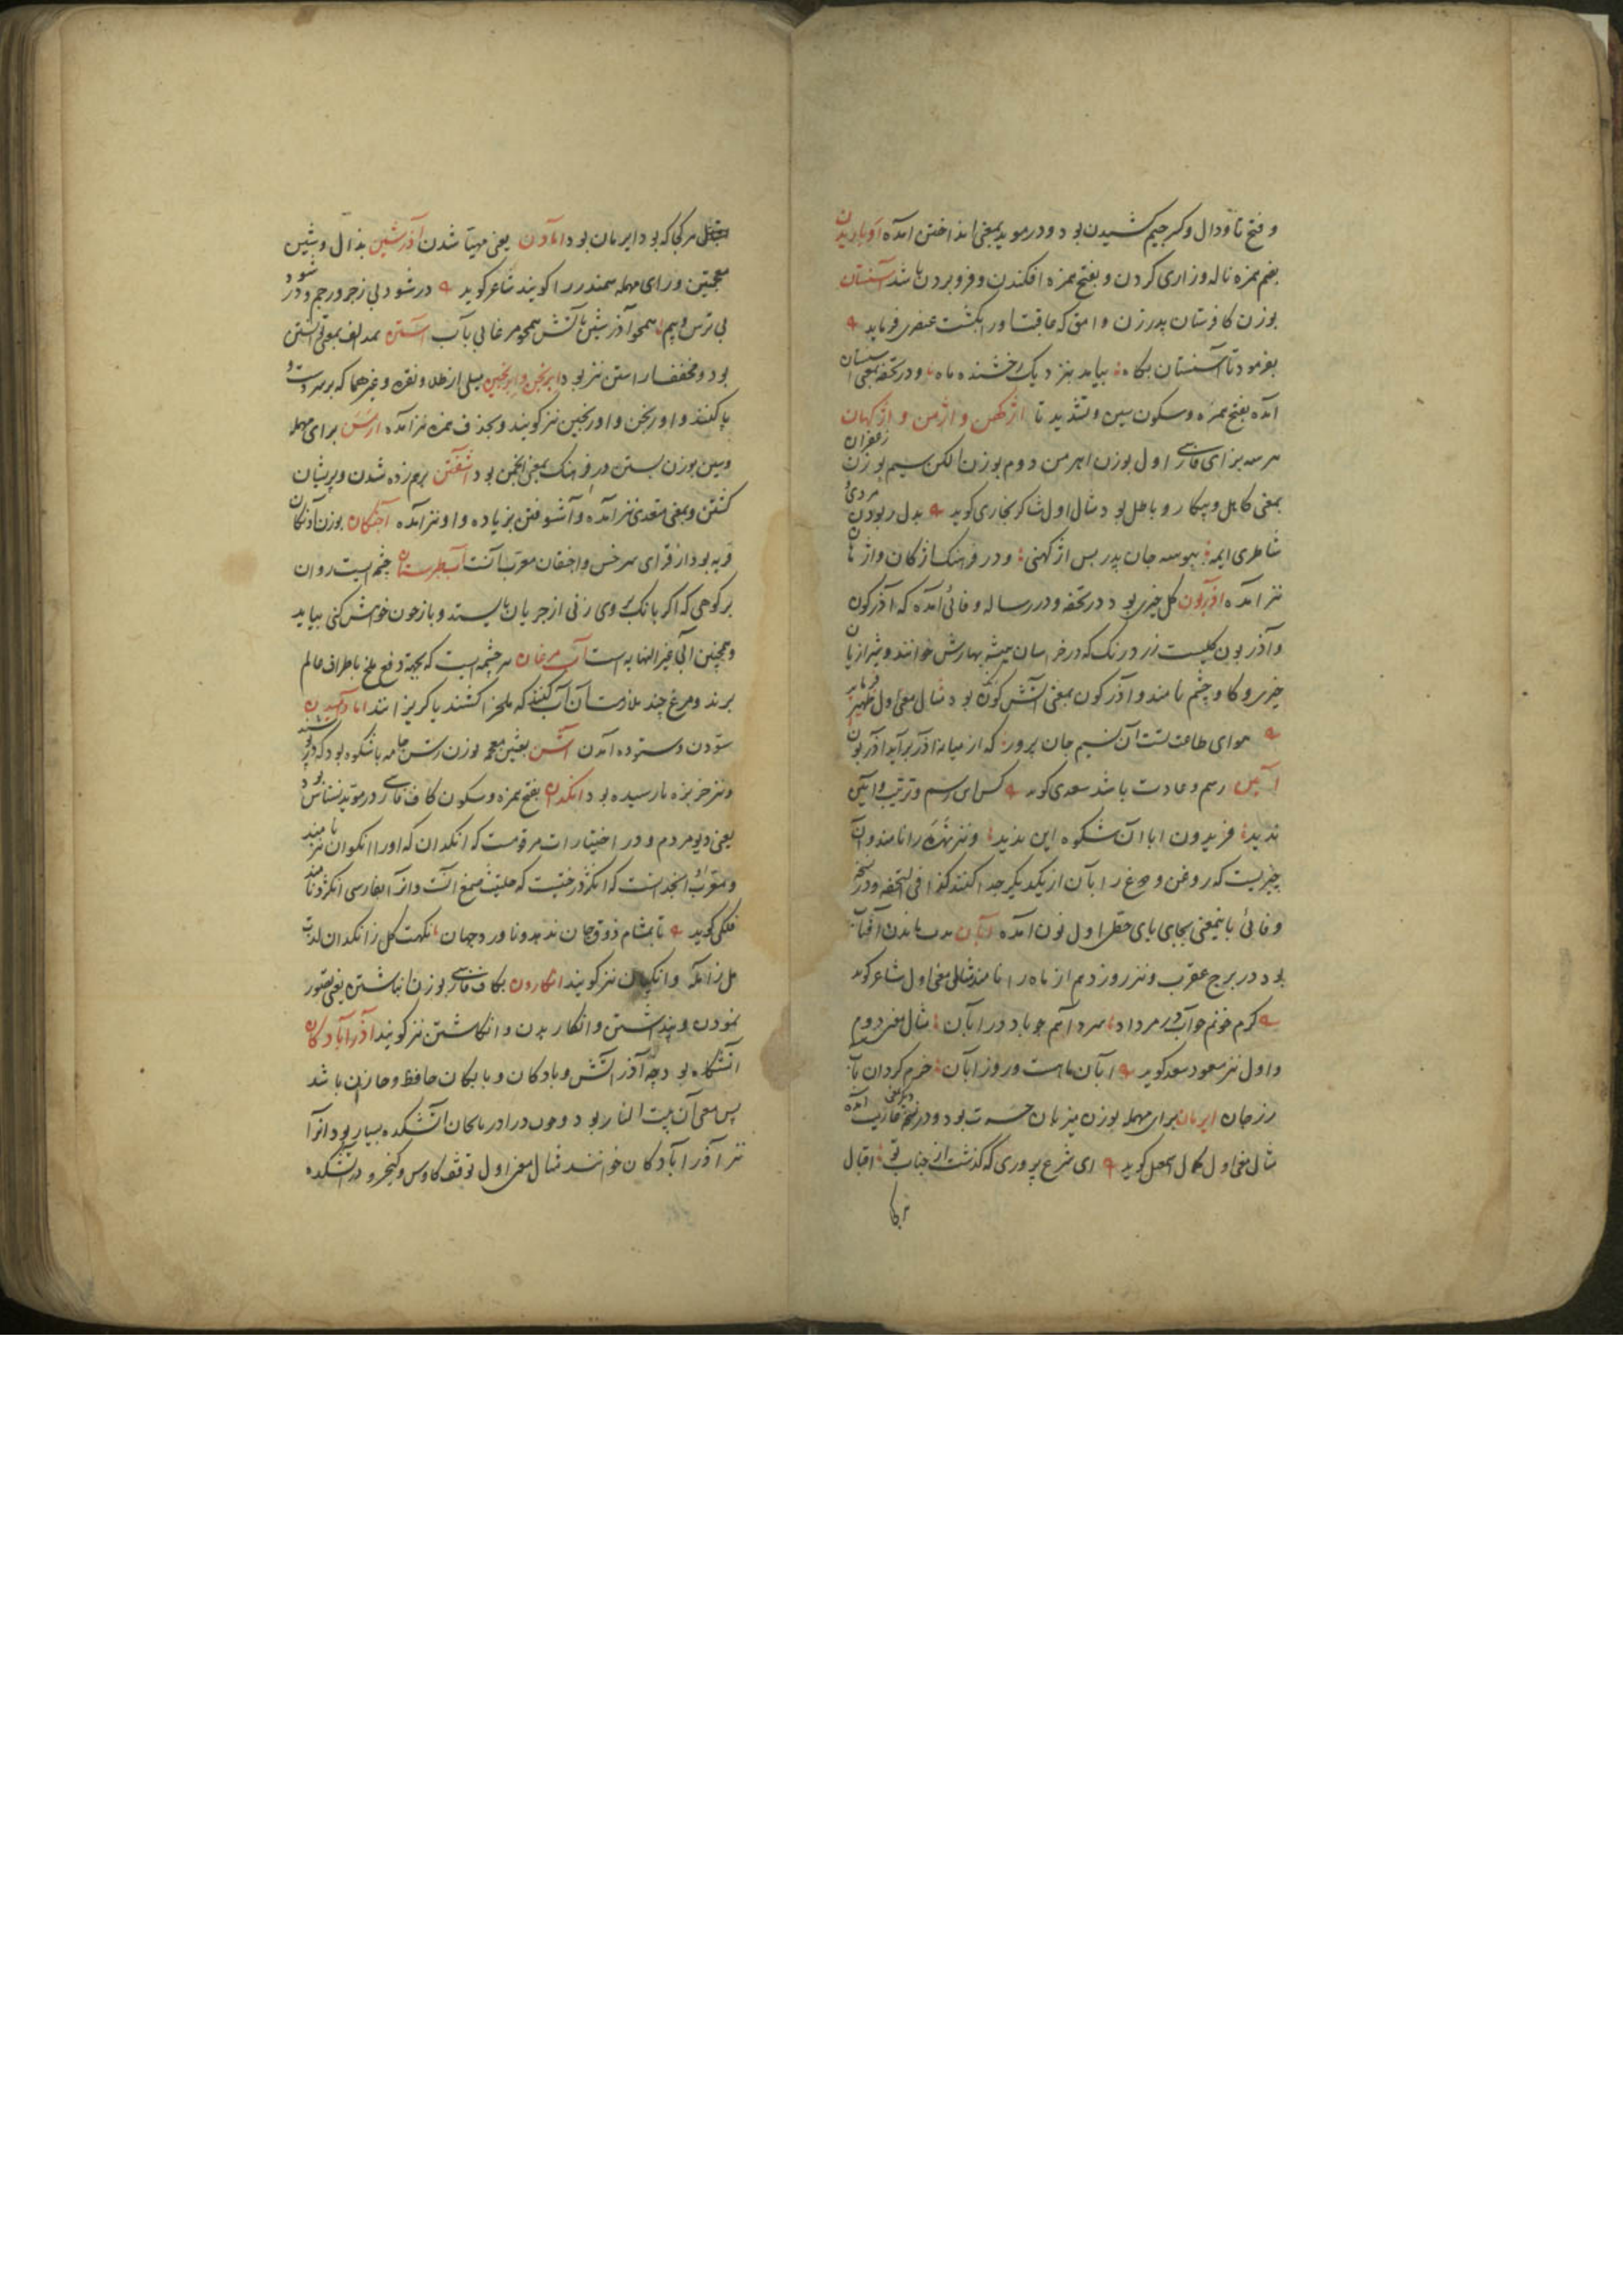 و فتح تا و دال و کسر جیم کشیدن بود و در موید بمعنی انداختن آمده اوباریدن
بضم همزه ناله وزاری کردن و بفتح همزه افکندن و فرو بردن باشد آسنستان
بوزن کافرستان پدر زن وامق که عاقبت اورا بکشت عنصری فرماید
بفرمود تا آسنستان بگاه بیاید بنزدیک رخشنده ماه و در تحفه بمعنی
آمده بفتح همزه و سکون سین و تشدید تا اژکهن و اژمن و اژکهان
هر سه بزای فارسی اول بوزن اهرمن دوم بوزن الکن سیم بوزن زعفران
بمعنی کاهل و بیکار و باطل بود مثال اول شاکر بخاری کوید بدل ربودن
شاطری ایمه ببوسه جان پدر بس اژکهنی و در فرهنک اژکان و اژهان
نیز آمده آذریون کل خیری بود در تحفه و در رساله وفائی آمده که آذرکون
و آذریون کلیست زرد رنک که در خراسان همیشه بهارش خوانند و شیرازیان
خیری و کاوچشم نامند و آذرکون بمعنی آتش کون بود مثال معنی اول ظهیر فرماید
هوای طاعت تست آن نسیم جان پرور که از میانه آذر برآید آذریون
آیین رسم و عادت باشد سعدی کوید کس این رسم و ترتیب و آیین
ندید فریدون ابا آن شکوه این ندید و نیز را نامند و آن
چیزیست که روغن و دوغ را بآن از یکدیکر جدا کنند کذا فی التحفه و در نسخه
وفائی باینمعنی بجای یای حطی اول نون آمده آبان مدت ماندن آفتاب
بود در برج عقرب و نیز روز دهم از ماه را نامند مثال معنی اول شاعر کوید
کرم خونم چو آب در مرداد سرد آهم چو باد در آبان مثال معنی دوم
و اول نیز مسعود سعد کوید آبان ماهست و روز آبان خرم کردان بآب
رز جان ایرمان برای مهمله بوزن میزبان حسرت بود و در نسخه عاریت آمده
مثال معنی اول کمال اسمعیل کوید ای شرع پروری که کذشت از جناب تو اقبال
هر کجا که بود ایرمان بود آمادن یعنی مهیا شدن آذرشین بذال و شین
معجمتین و رای مهمله سمندر را کویند شاعر کوید در شود بی زجر و رجم و در شود
بی ترس و بیم همچو آذرشین بآتش همچو مرغابی بآب آستن بمد الف بمعنی آبستن
بود و مخفف آراستن نیز بود ابرنجن و ابرنجین میلی از طلا و نقره و غیرهما که بر سر دست و
پا کنند و اورنجن و اورنجین نیز کویند و بحذف همزه نیز آمده ارسن برای مهمله
و سین بوزن بستن در فرهنک بمعنی انجمن بود آشفتن برهم زده شدن و پریشان
کشتن و بمعنی متعدی نیز آمده و آشوفتن بزیاده واو نیز آمده
قریه بود از قرای سرخس و اخنقان معرب آنست آب طبرستان چشمه ایست روان
بر کوهی که اکر بانک بروی زنی از جریان بایستد و باز چون خواهش کنی بیاید
و همچنین الی غیر النهایه است آب مرغان سرچشمه ایست که بجهة دفع ملخ باطراف عالم
برند و مرغ چند ملازمت آن آب کنند که ملخرا کشند یا کریزانند
ستودن و ستوده آمدن آشن بشین معجمه بوزن رسن جامه باشکونه بود که در پوشند
و نیز خربزه نارسیده بود انکدان بفتح همزه و سکون کاف فارسی در موید نسناس بود
یعنی دیو مردم و در اختیارات مرقومست که انکدان که اورا انکوان نیز نامند
و معرب او انجدانست که انکژد درختیست که حلتیت صمغ آنست و آنرا بفارسی انکژد نامند
فلکی کوید تا بمشام ذوق جان ندهد و ناورد جهان نکهت کل ز انکدان لذت
مل ز آمله و انکیان نیز کویند انکاردن بکاف فارسی بوزن انباشتن یعنی تصور
نمودن و پنداشتن و انکاریدن و انکاشتن نیز کویند آذرآبادکان
آتشکاه بود چه آذر آتش و بادکان و بایکان حافظ و خازن باشد
پس معنی آن بیت النار بود و چون در آذربایجان آتشکده بسیار بود آنرا
نیز آذرآبادکان خوانند مثال معنی اول توقف کاوس و کیخسرو در آتشکده